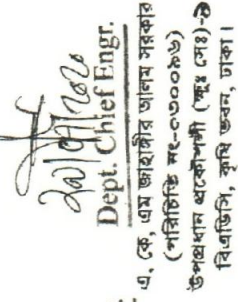 Dept. Chief Engr.
এ, কে, এম জাহাঙ্গীর আলম সরকার
(পরিচিতি নং-০৩০০৯৬)
উপপ্রধান প্রকৌশলী (ক্ষুঃ সেঃ)-১
বিএডিসি, কৃষি ভবন, ঢাকা।